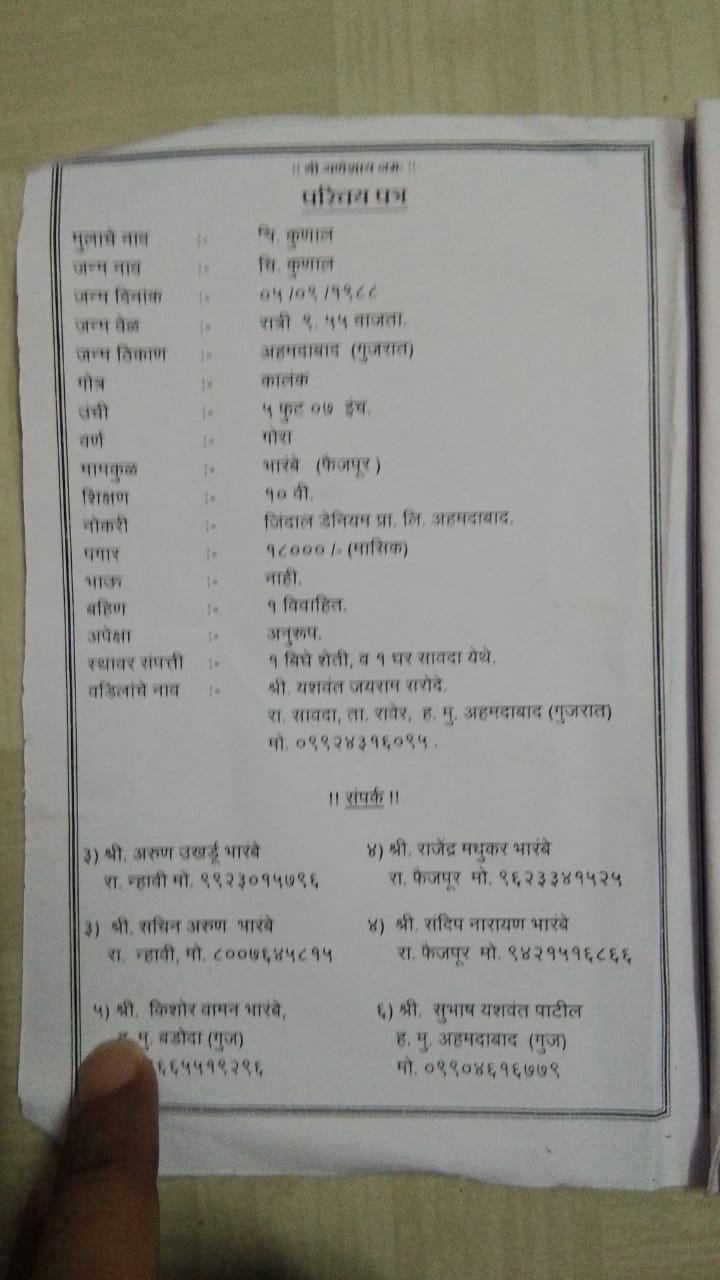 !! श्री गणेशाय नमः !!
परिचय पत्र
मुलाचे नाव :- चि. कुणाल
जन्म नाव :- चि. कुणाल
जन्म दिनांक :- ०५/०९/१९८८
जन्म वेळ :- रात्री ९. ५५ वाजता.
जन्म ठिकाण :- अहमदाबाद (गुजरात)
गोत्र :- कालंक
उंची :- ५ फुट ०७ इंच.
वर्ण :- गोरा
मामकुळ :- भारंबे (फैजपूर )
शिक्षण :- १० वी.
नोकरी :- जिंदाल डेनियम प्रा. लि. अहमदाबाद.
पगार :- १८००० /- (मासिक)
भाऊ :- नाही.
बहिण :- १ विवाहित.
अपेक्षा :- अनुरूप.
स्थावर संपत्ती :- १ बिघे शेती, व १ घर सावदा येथे.
वडिलांचे नाव :- श्री. यशवंत जयराम सरोदे.
रा. सावदा, ता. रावेर, ह. मु. अहमदाबाद (गुजरात)
मो. ०९९२४३१६०९५ .
!! संपर्क !!
३) श्री. अरुण उखर्डू भारंबे ४) श्री. राजेंद्र मधुकर भारंबे
रा. न्हावी मो. ९९२३०१५७९६ रा. फैजपूर मो. ९६२३३४१५२५
३) श्री. सचिन अरुण भारंबे ४) श्री. संदिप नारायण भारंबे
रा. न्हावी, मो. ८००७६४५८१५ रा. फैजपूर मो. ९४२१५१६८६६
५) श्री. किशोर वामन भारंबे, ६) श्री. सुभाष यशवंत पाटील
ह. मु. बडोदा (गुज) ह. मु. अहमदाबाद (गुज)
६६५५१९२९६ मो. ०९९०४६१६७७९